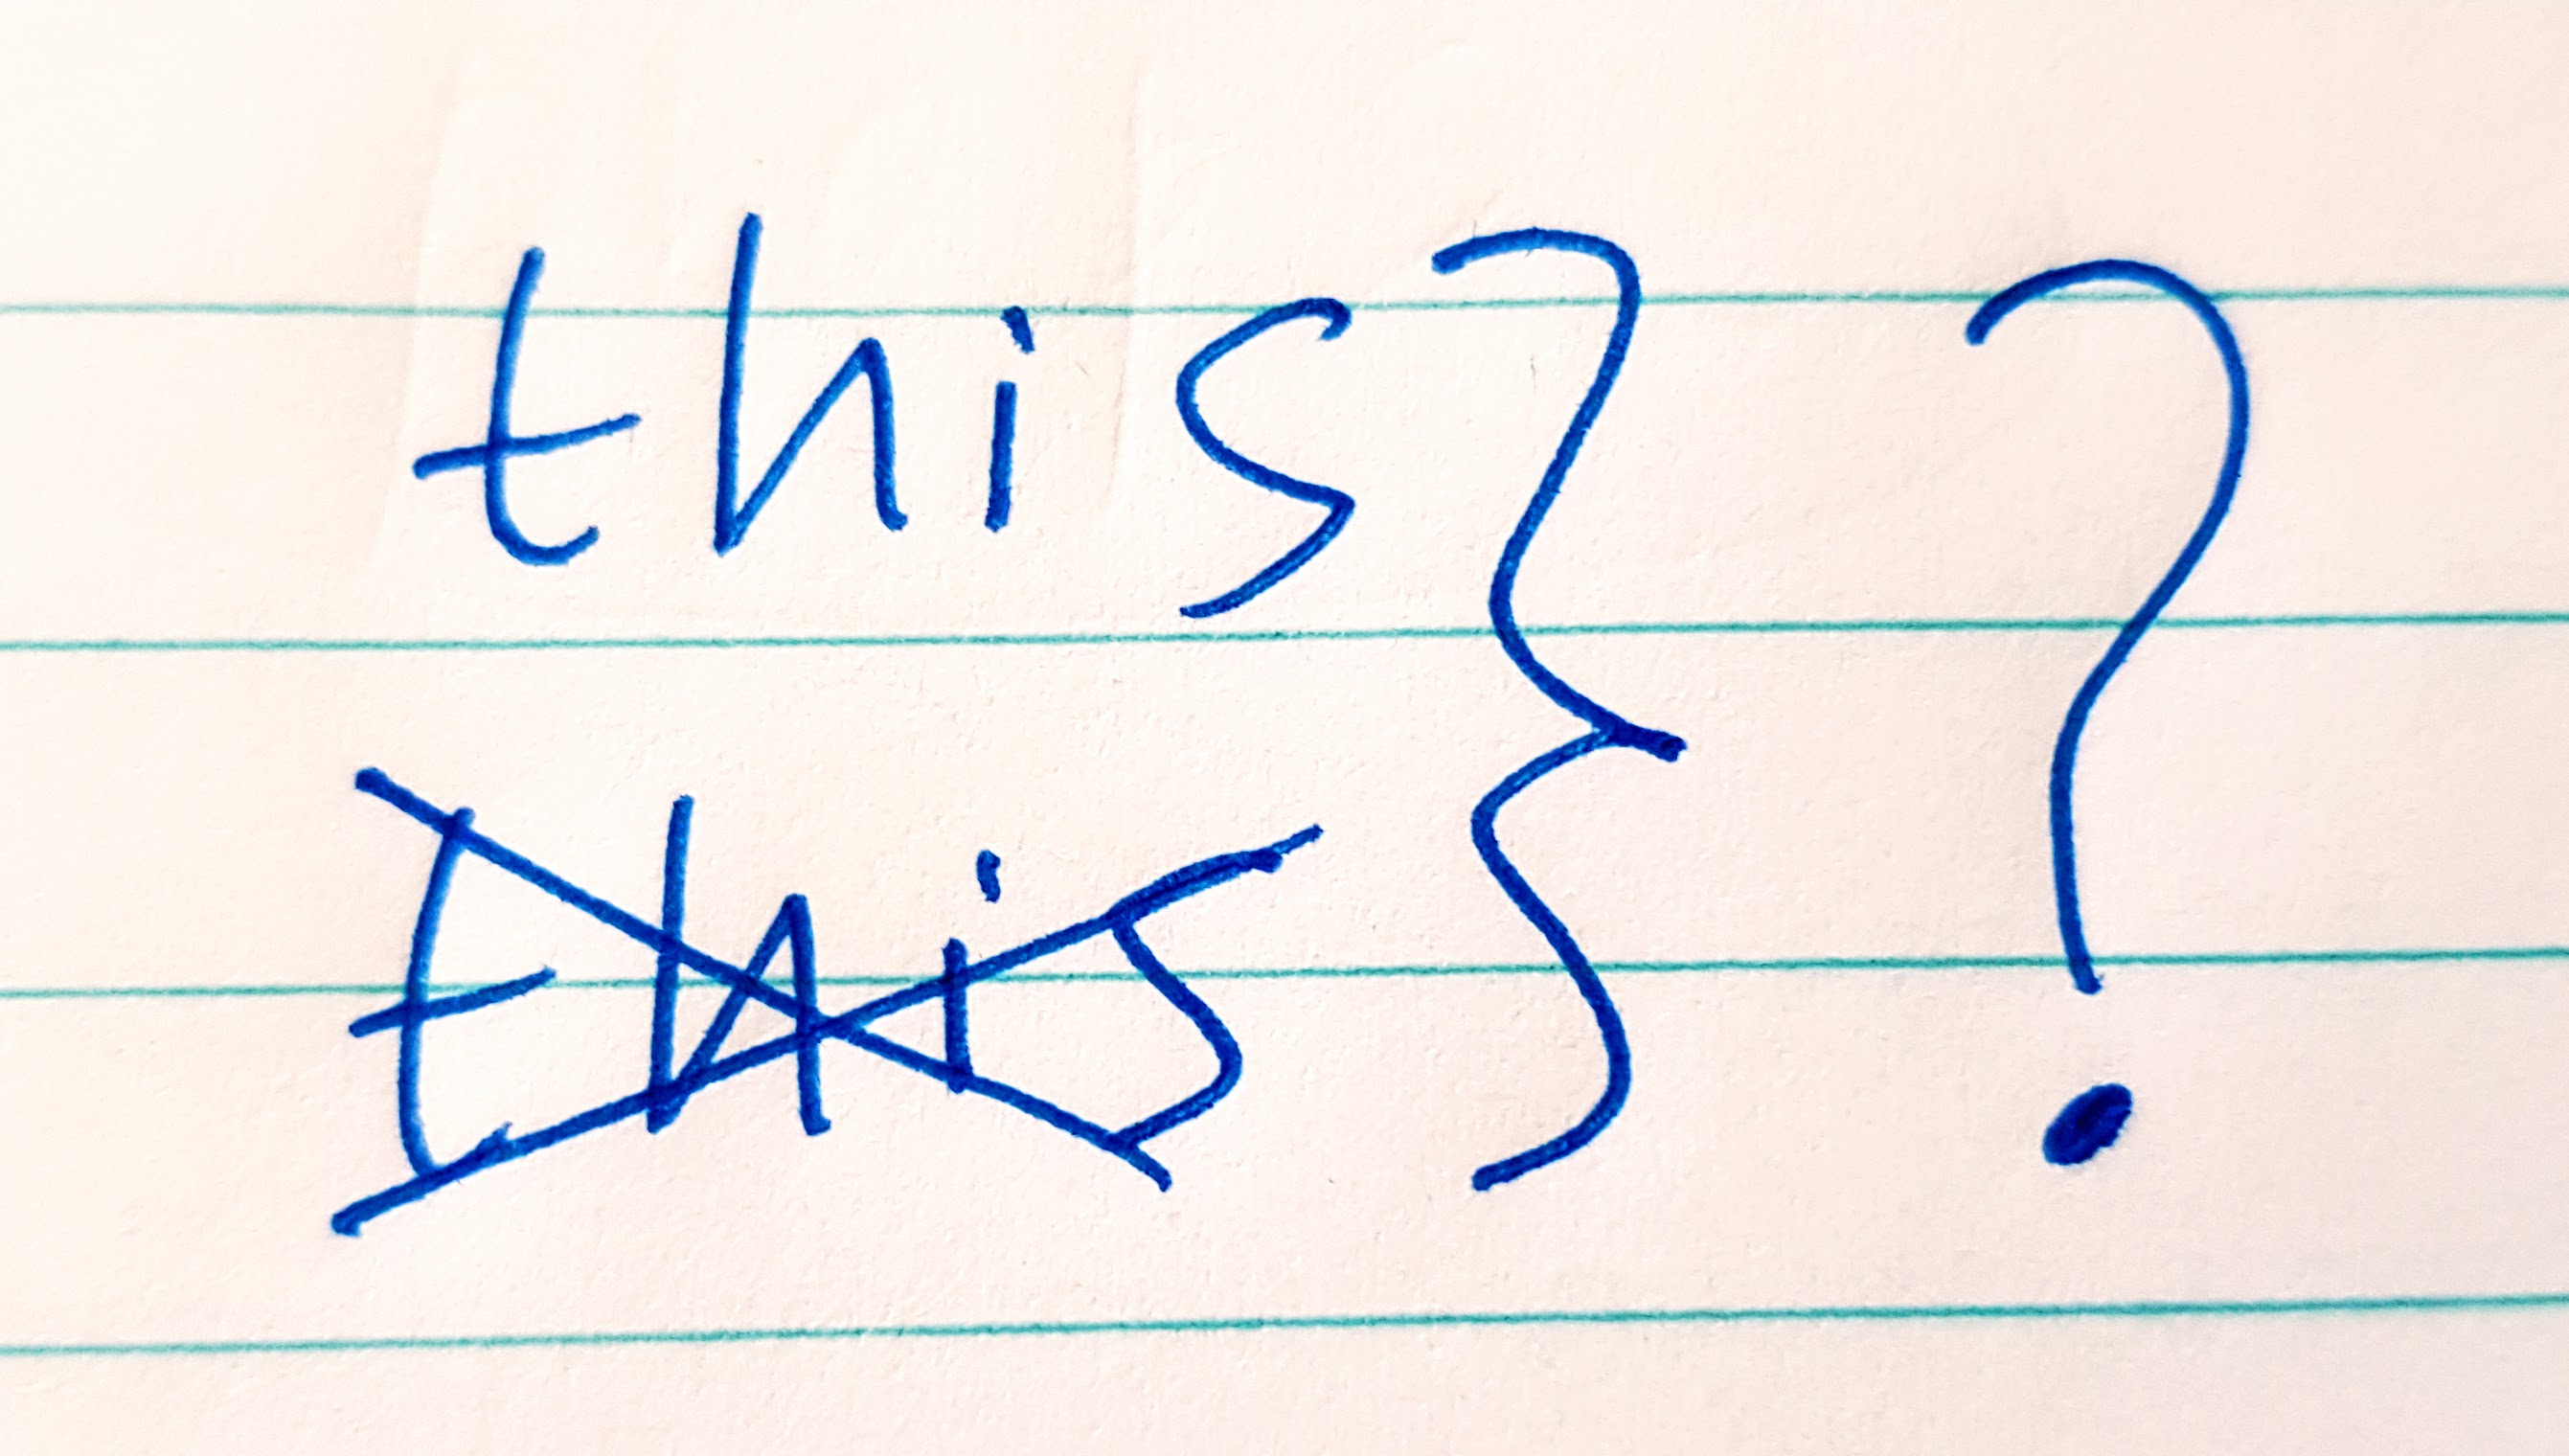 this } ?
this